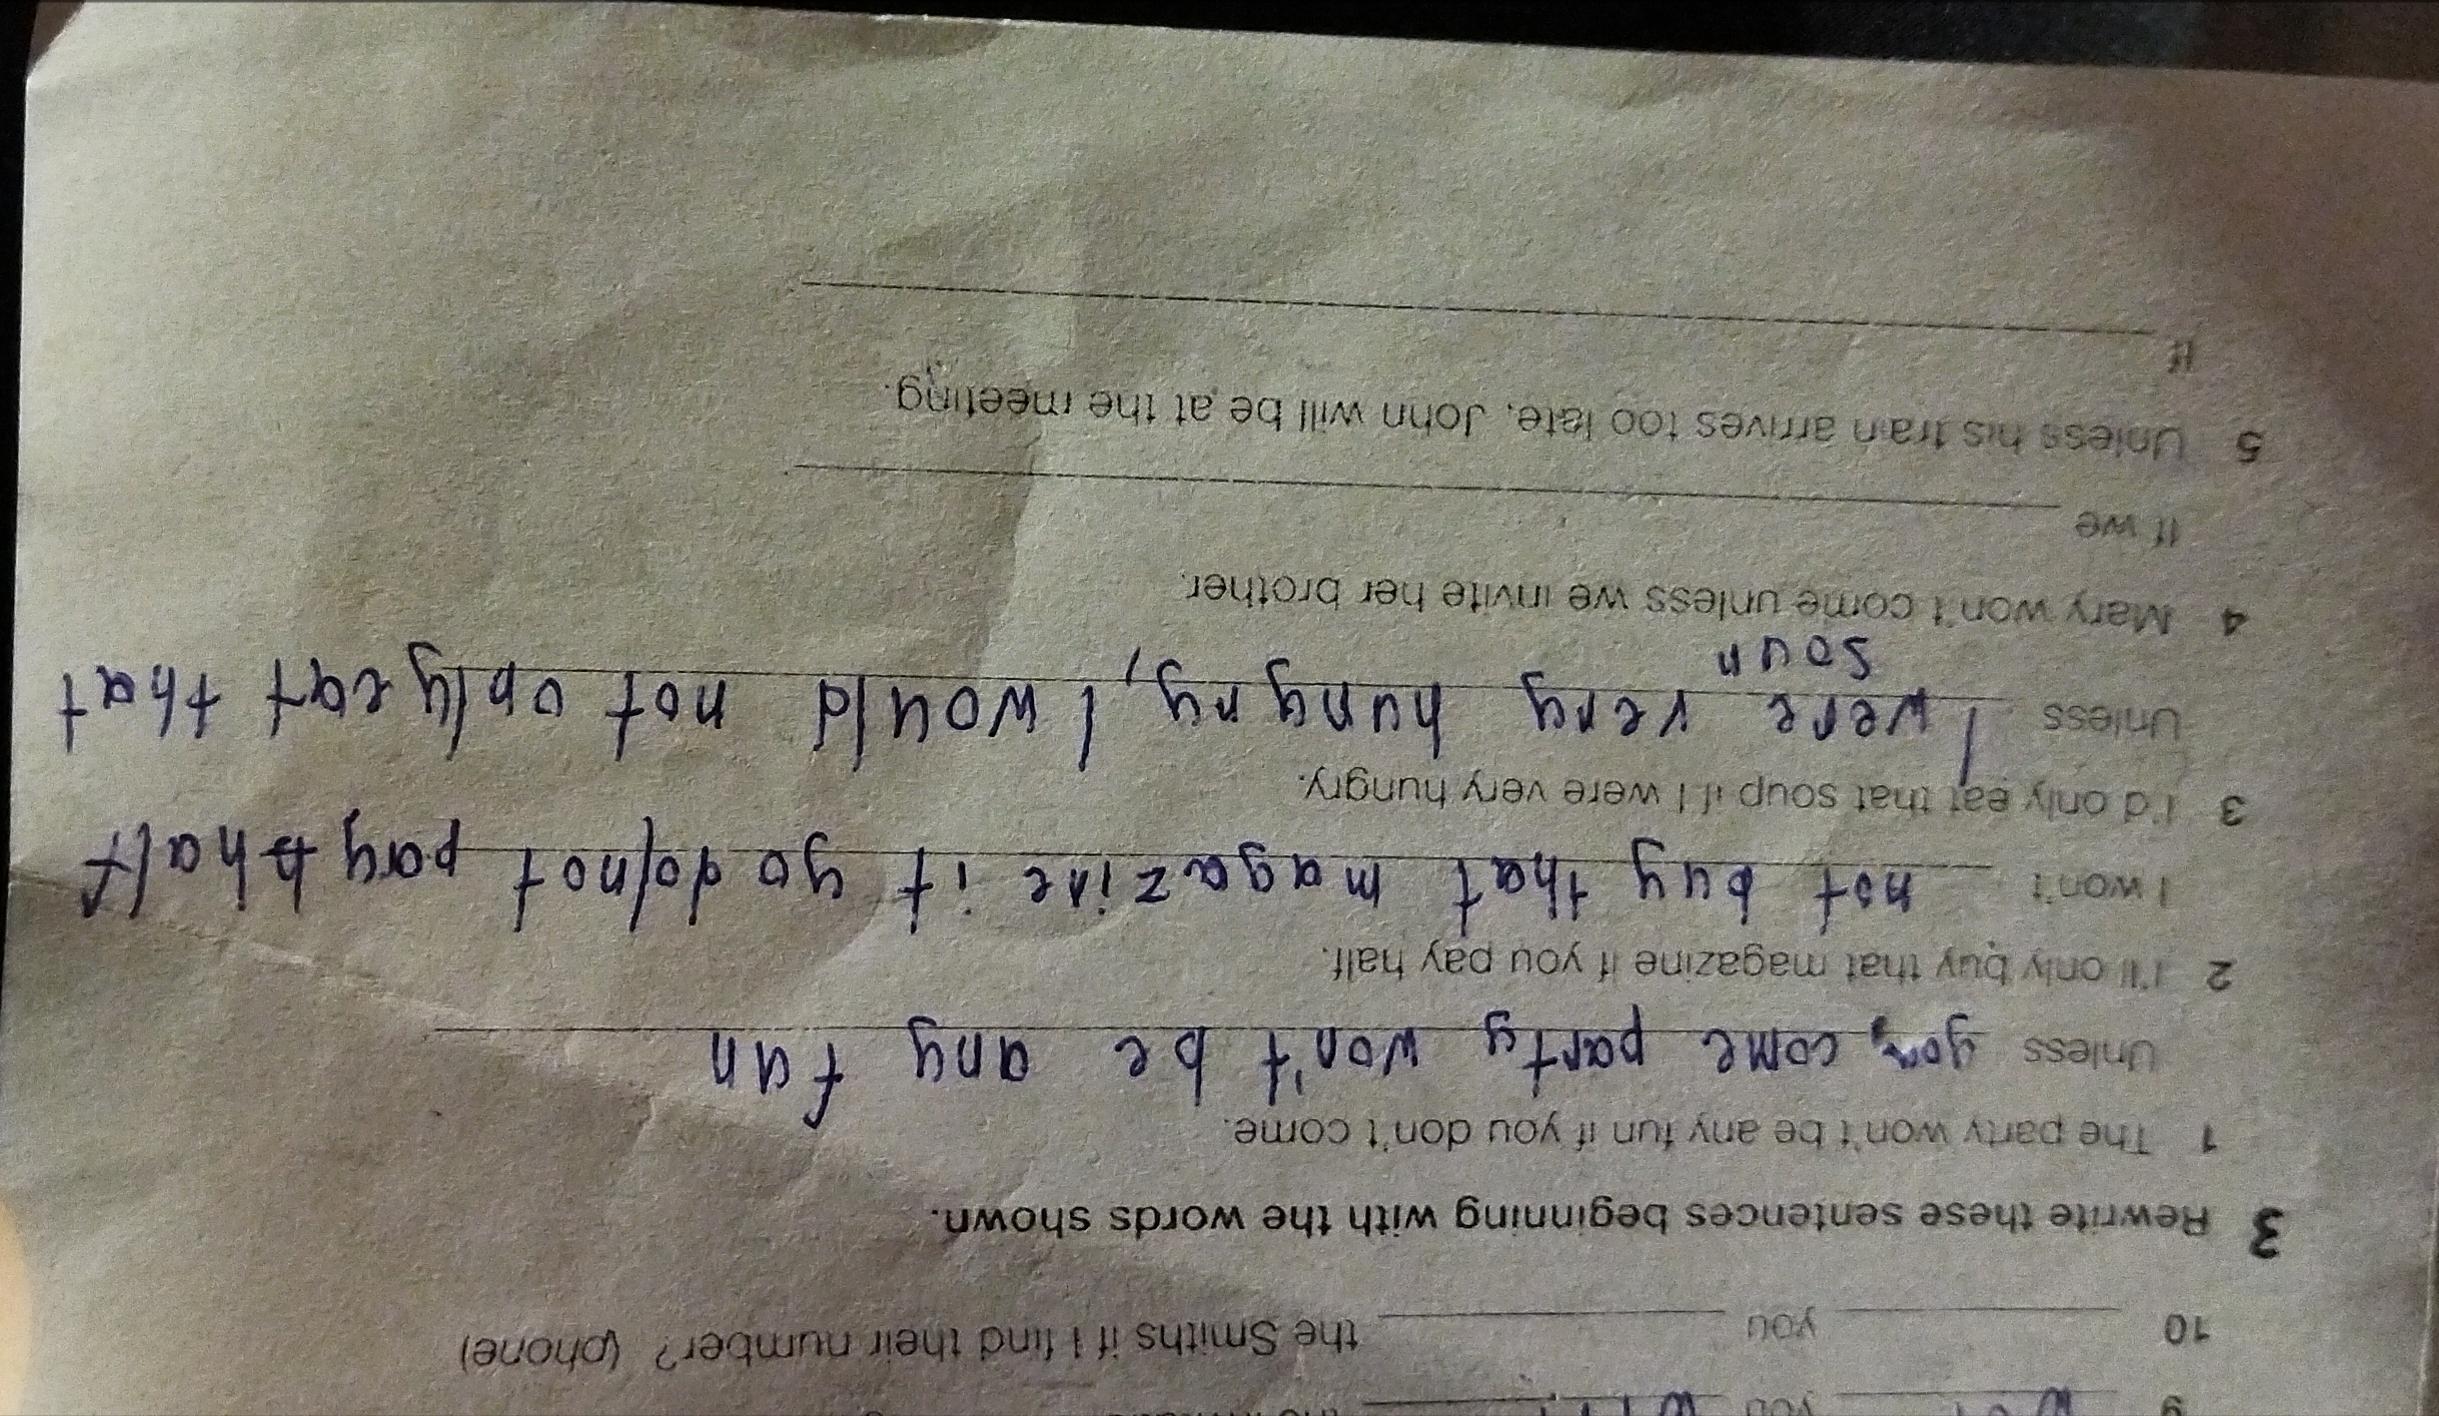 9 you
10 you the Smiths if I find their number? (phone)
3 Rewrite these sentences beginning with the words shown.
1 The party won't be any fun if you don't come.
Unless you, come party won't be any fun
2 I'll only buy that magazine if you pay half.
I won't not buy that magazine if yo do/not pay half
3 I'd only eat that soup if I were very hungry.
Unless I were very hungry, I would not only eat that
soup
4 Mary won't come unless we invite her brother.
If we
5 Unless his train arrives too late, John will be at the meeting.
If